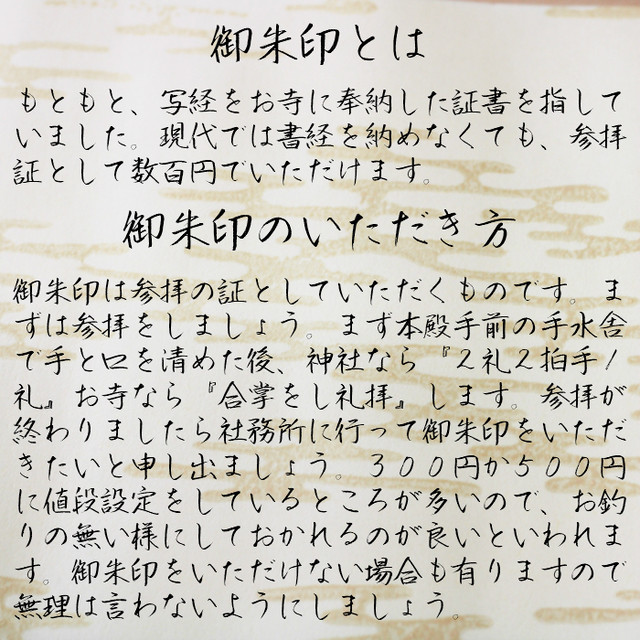 御朱印とは
もともと、写経をお寺に奉納した証書を指して
いました。現代では書経を納めなくても、参拝
証として数百円でいただけます。
御朱印のいただき方
御朱印は参拝の証としていただくものです。ま
ずは参拝をしましょう。まず本殿手前の手水舎
で手と口を清めた後、神社なら『2礼2拍手1
礼』お寺なら『合掌をし礼拝』します。参拝が
終わりましたら社務所に行って御朱印をいただ
きたいと申し出ましょう。300円か500円
に値段設定をしているところが多いので、お釣
りの無い様にしておかれるのが良いといわれま
す。御朱印をいただけない場合も有りますので
無理は言わないようにしましょう。